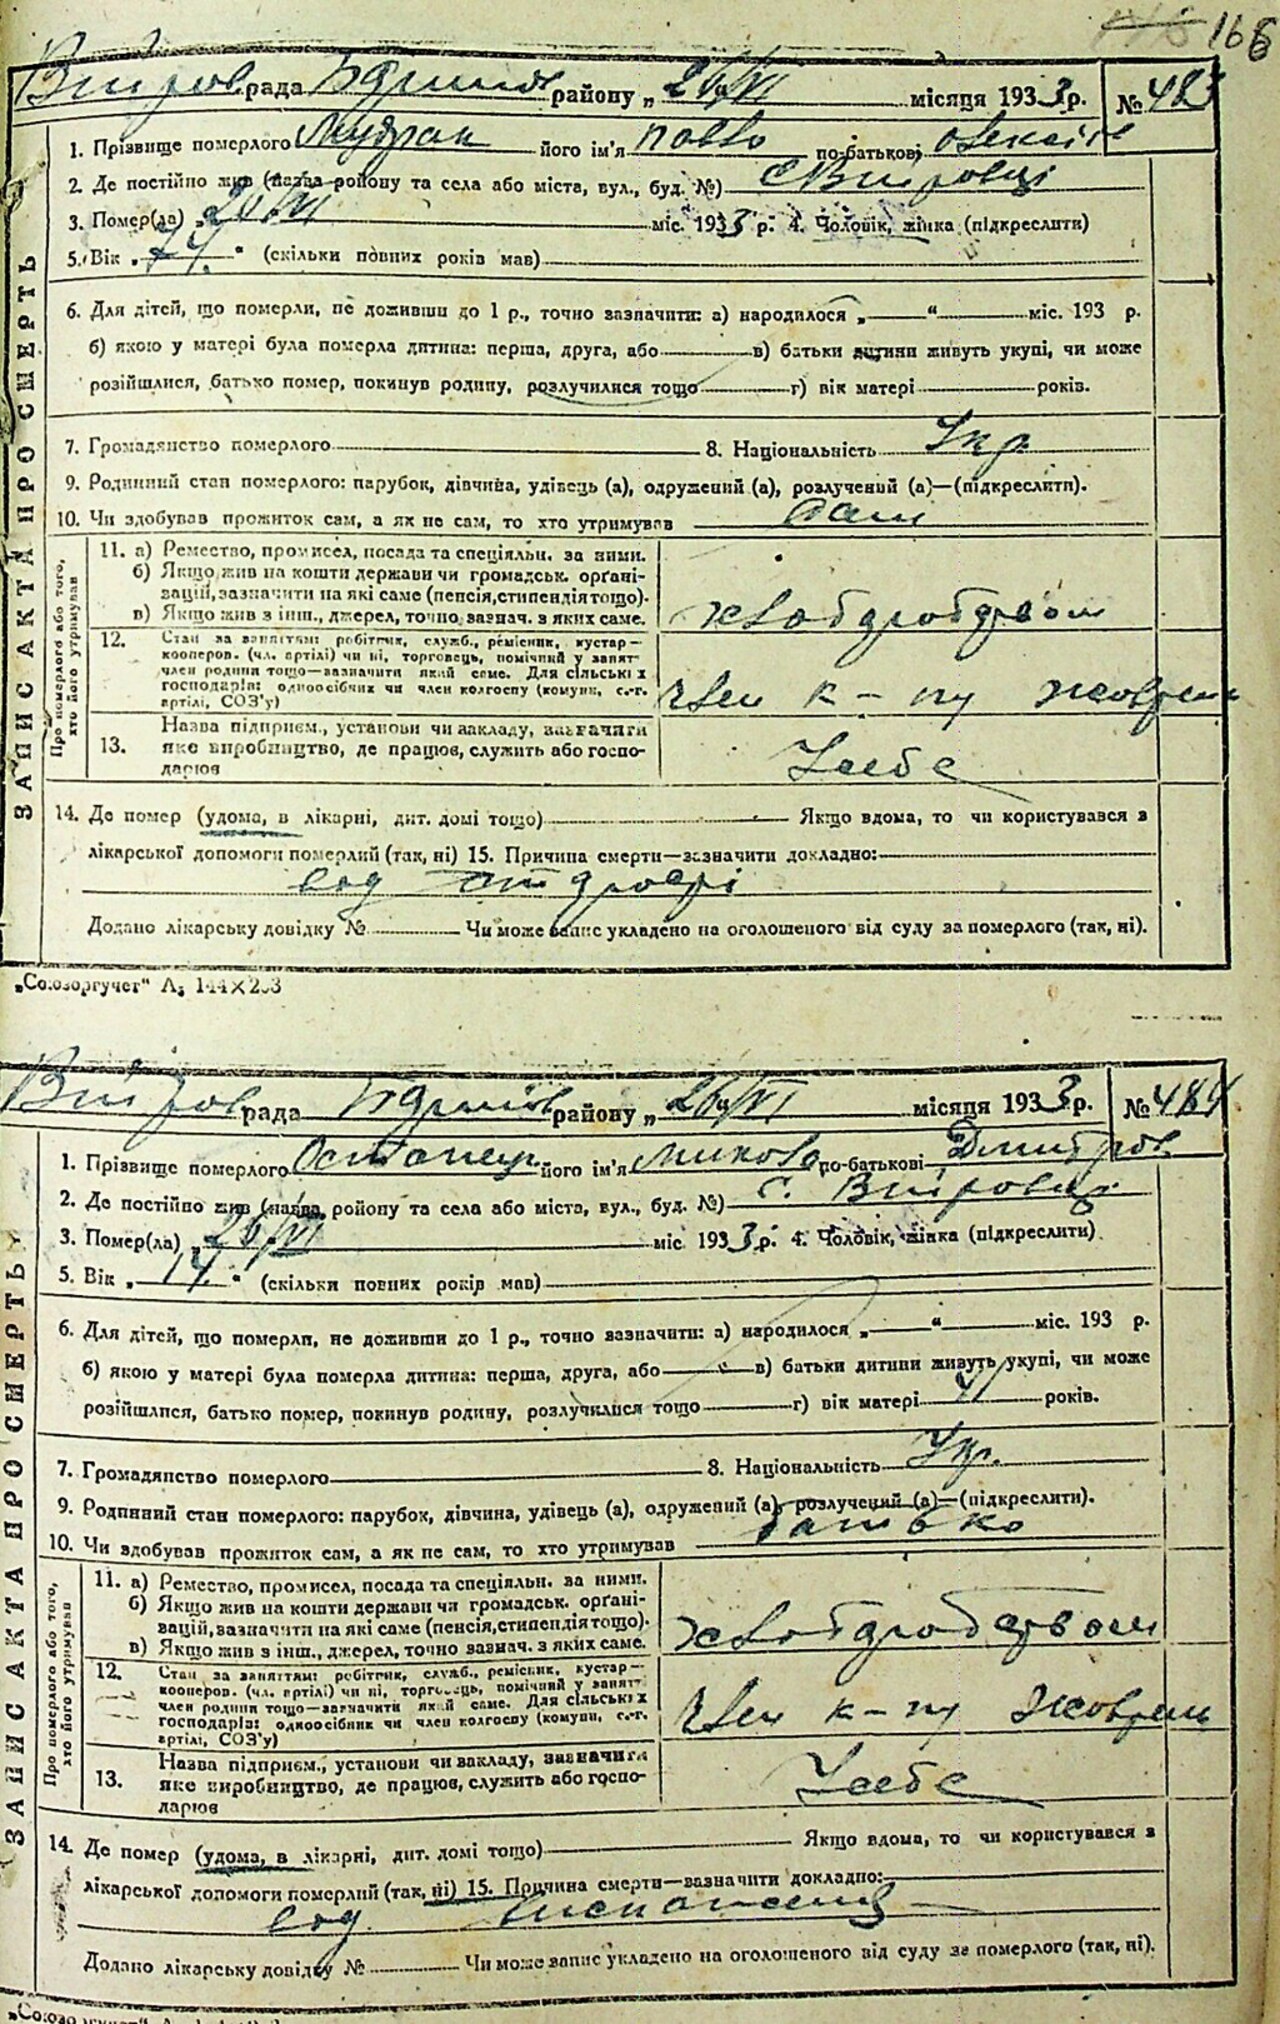 166
рада району „26/VI місяця 1933 р. № 483
1. Прізвище померлого Мудрак його ім'я Павло по-батькові Олексійов
2. Де постійно жив (назва району та села або міста, вул., буд. №) с Вітровці
3. Помер(ла) „26/VI міс. 1933 р. 4. Чоловік, жінка (підкреслити)
5. Вік „74." (скільки повних років мав)
6. Для дітей, що померли, не доживши до 1 р., точно зазначити: а) народилося „ " міс. 193 р.
б) якою у матері була померла дитина: перша, друга, або в) батьки дитини живуть укупі, чи може
розійшлися, батько помер, покинув родину, розлучилися тощо г) вік матері років.
7. Громадянство померлого 8. Національність Укр.
9. Родинний стан померлого: парубок, дівчина, удівець (а), одружений (а), розлучений (а)—(підкреслити).
10. Чи здобував прожиток сам, а як не сам, то хто утримував сам
ЗАПИС АКТА ПРО СМЕРТЬ
Про померлого або того, хто його утримував
11. а) Ремество, промисел, посада та спеціяльн. за ними.
б) Якщо жив на кошти держави чи громадськ. орґані-
зацій, зазначити на які саме (пенсія, стипендія тощо).
в) Якщо жив з інш., джерел, точно зазнач. з яких саме. хліборобством
12. Стан за заняттям: робітник, служб., ремісник, кустар—
кооперов. (чл. артілі) чи ні, торговець, помічний у занят-
член родини тощо—зазначити який саме. Для сільських
господарів: одноосібник чи член колгоспу (комуни, с.-г.
артілі, СОЗ'у) член к-пу Жовтень
13. Назва підприєм., установи чи закладу, зазначити
яке виробництво, де працює, служить або госпо-
дарює У себе
14. Де помер (удома, в лікарні, дит. домі тощо) Якщо вдома, то чи користувався з
лікарської допомоги померлий (так, ні) 15. Причина смерти—зазначити докладно:
од
Додано лікарську довідку № Чи може запис укладено на оголошеного від суду за померлого (так, ні).
„Союзоргучет"
рада району „26/VI місяця 1933 р. № 484
1. Прізвище померлого Остапець його ім'я Микола по-батькові Дмитров
2. Де постійно жив (назва району та села або міста, вул., буд. №) с. Вітровці
3. Помер(ла) „26/VI міс 1933 р. 4. Чоловік, жінка (підкреслити)
5. Вік „14." (скільки повних років мав)
6. Для дітей, що померли, не доживши до 1 р., точно зазначити: а) народилося „ " міс. 193 р.
б) якою у матері була померла дитина: перша, друга, або в) батьки дитини живуть укупі, чи може
розійшлися, батько помер, покинув родину, розлучилися тощо г) вік матері років.
7. Громадянство померлого 8. Національність Укр.
9. Родинний стан померлого: парубок, дівчина, удівець (а), одружений (а), розлучений (а)—(підкреслити).
10. Чи здобував прожиток сам, а як не сам, то хто утримував батько
ЗАПИС АКТА ПРО СМЕРТЬ
Про померлого або того, хто його утримував
11. а) Ремество, промисел, посада та спеціяльн. за ними.
б) Якщо жив на кошти держави чи громадськ. орґані-
зацій, зазначити на які саме (пенсія, стипендія тощо).
в) Якщо жив з інш., джерел, точно зазнач. з яких саме. хліборобством
12. Стан за заняттям: робітник, служб., ремісник, кустар—
кооперов. (чл. артілі) чи ні, торговець, помічний у занят-
член родини тощо—зазначити який саме. Для сільських
господарів: одноосібник чи член колгоспу (комуни, с.-г.
артілі, СОЗ'у) член к-пу Жовтень
13. Назва підприєм., установи чи закладу, зазначити
яке виробництво, де працює, служить або госпо-
дарює У себе
14. Де помер (удома, в лікарні, дит. домі тощо) Якщо вдома, то чи користувався з
лікарської допомоги померлий (так, ні) 15. Причина смерти—зазначити докладно:
од
Додано лікарську довідку № Чи може запис укладено на оголошеного від суду за померлого (так, ні).